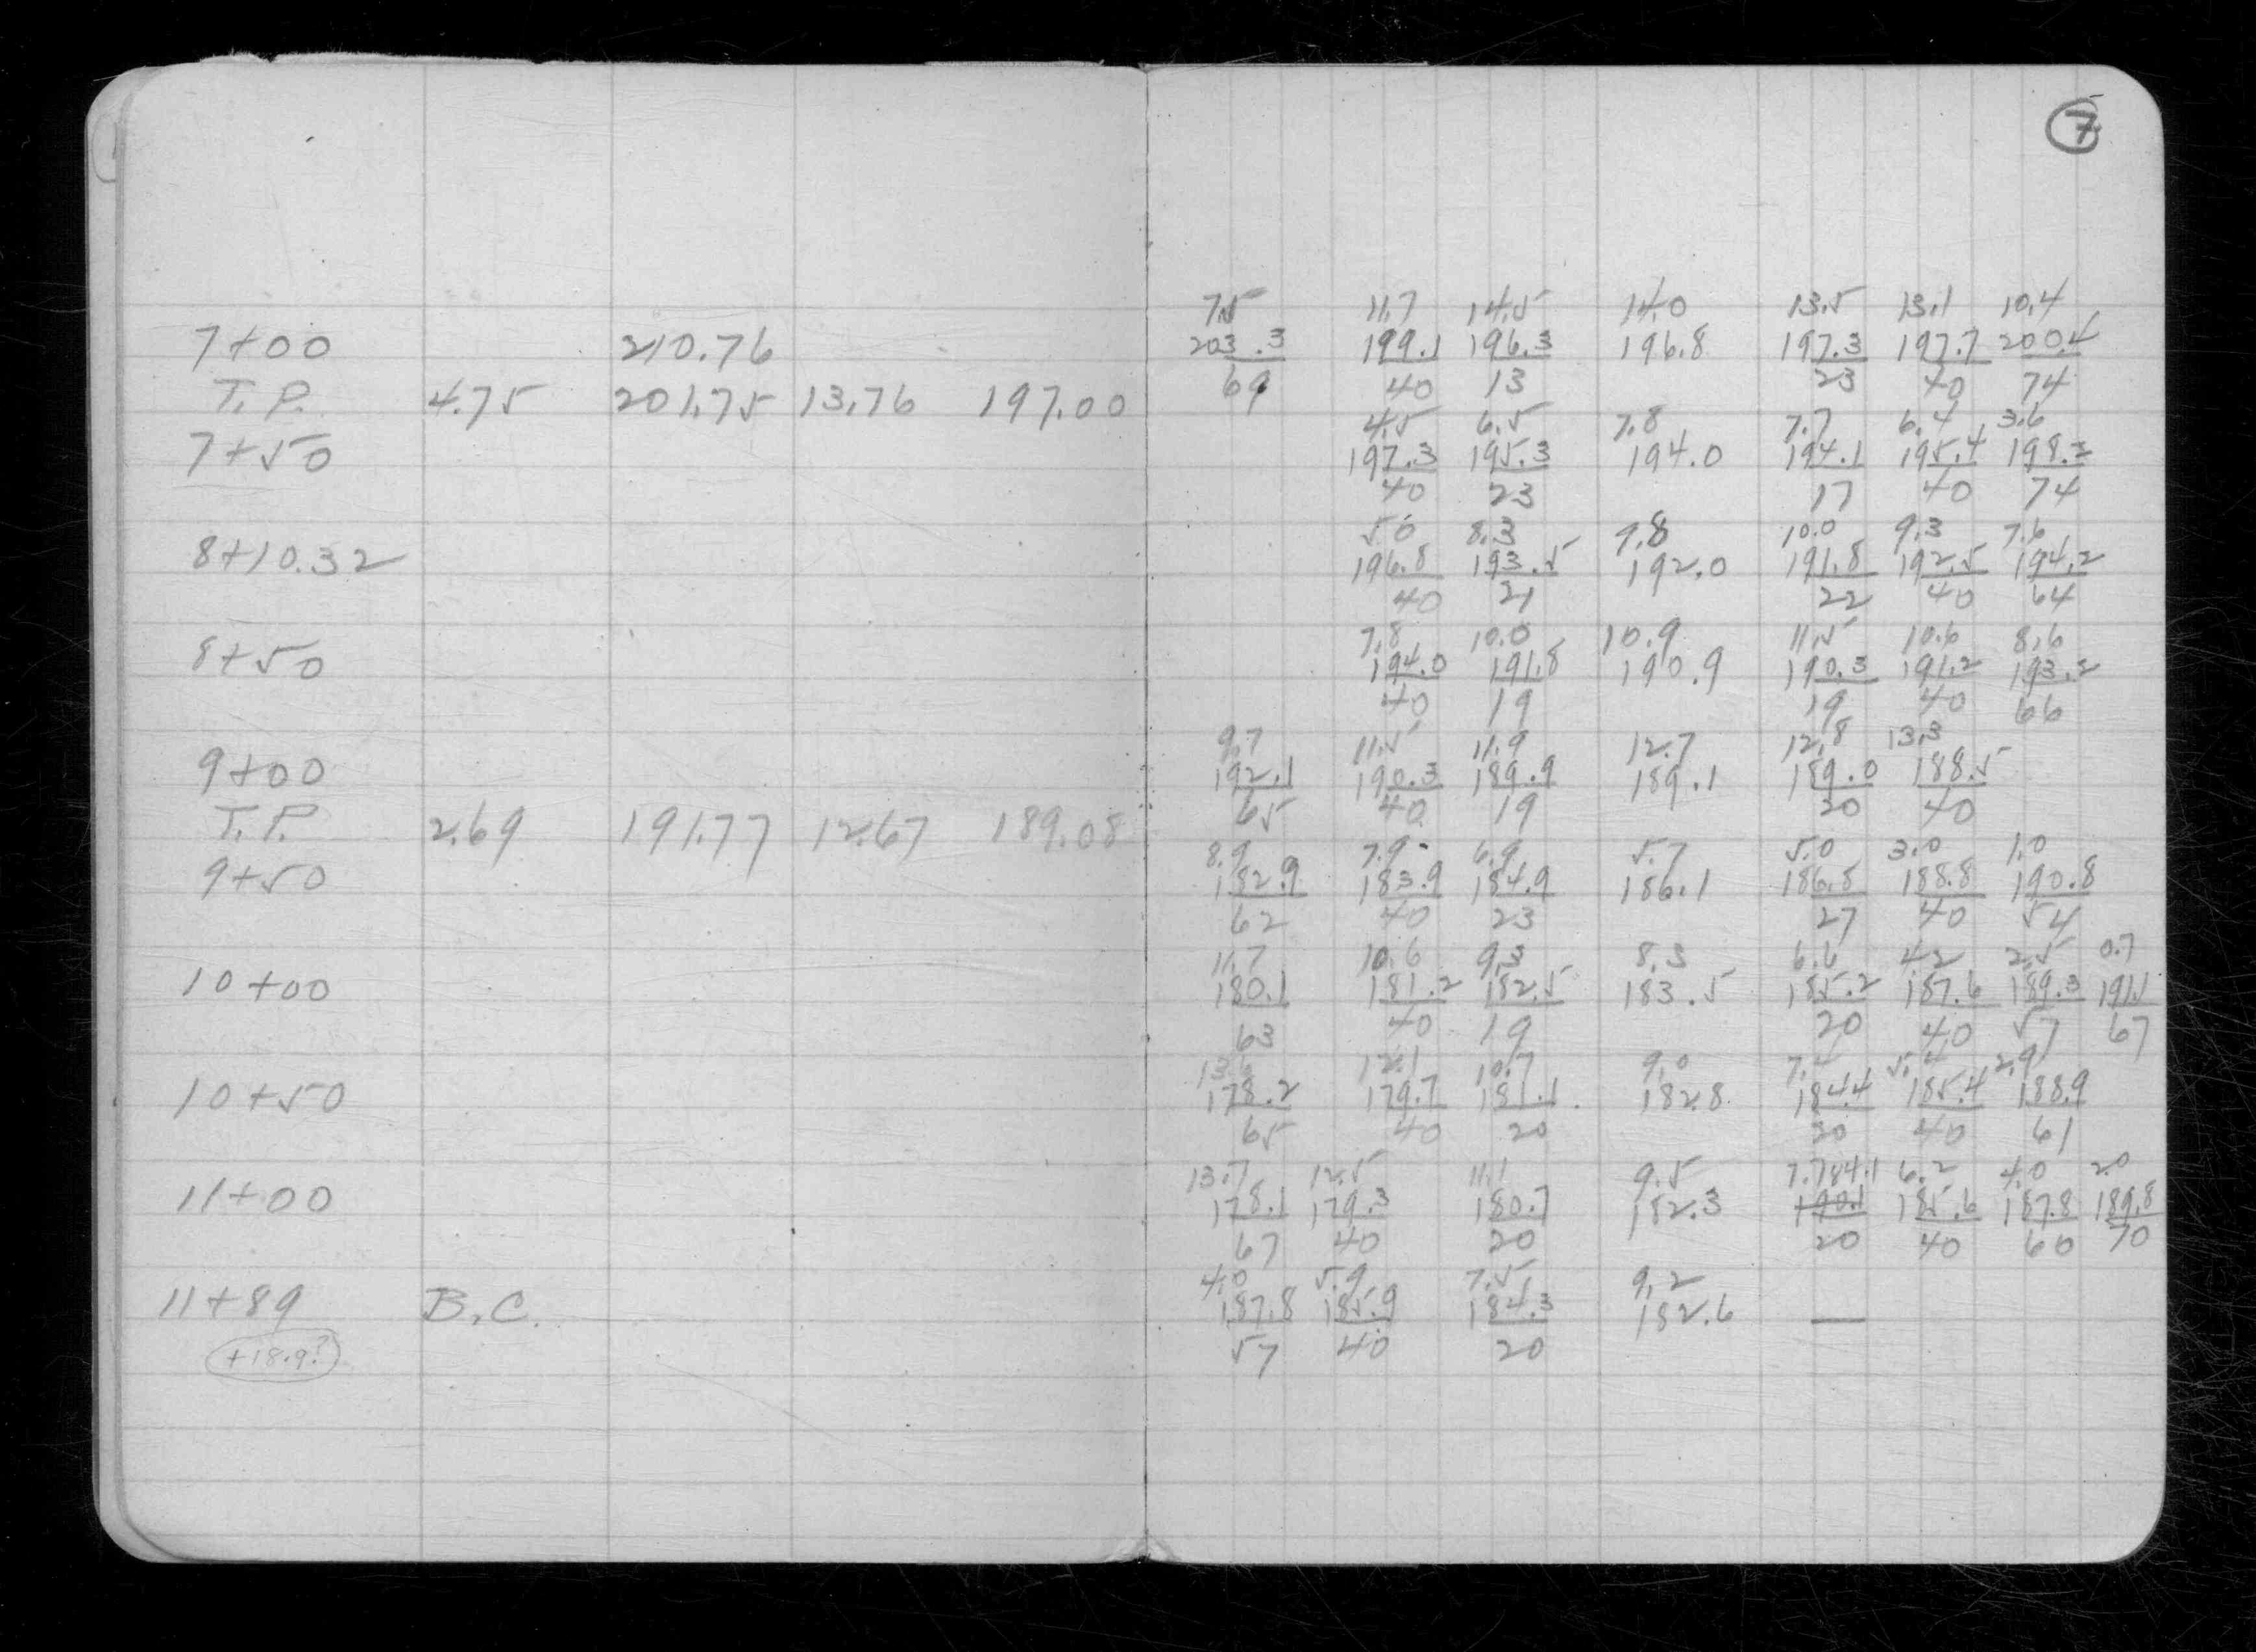 7
7.5 11.7 14.5 14.0 13.5 13.1 10.4
7+00 210.76 203.3 199.1 196.3 196.8 197.3 197.7 200.4
69 40 13 23 40 74
T.P. 4.75 201.75 13.76 197.00
4.5 6.5 7.8 7.7 6.4 3.6
7+50 197.3 195.3 194.0 194.1 195.4 198.2
40 23 17 40 74
5.0 8.3 9.8 10.0 9.3 7.6
8+10.32 196.8 193.5 192.0 191.8 192.5 194.2
40 21 22 40 64
7.8 10.0 10.9 11.5 10.6 8.6
8+50 194.0 191.8 190.9 190.3 191.2 193.2
40 19 19 40 66
9.7 11.5 11.9 12.7 12.8 13.3
9+00 192.1 190.3 189.9 189.1 189.0 188.5
65 40 19 20 40
T.P. 2.69 191.77 12.67 189.08
8.9 7.9 6.9 5.7 5.0 3.0 1.0
9+50 182.9 183.9 184.9 186.1 186.8 188.8 190.8
62 40 23 27 40 54
11.7 10.6 9.3 8.3 6.6 4.2 2.5 0.7
10+00 180.1 181.2 182.5 183.5 185.2 187.6 189.3 191.1
63 40 19 20 40 57 67
13.6 12.1 10.7 9.0 7.4 5.4 2.9
10+50 178.2 179.7 181.1 182.8 184.4 185.4 188.9
65 40 20 20 40 61
13.7 12.5 11.1 9.5 7.7 84.1 6.2 4.0 2.0
11+00 178.1 179.3 180.7 182.3 190.1 185.6 187.8 189.8
67 40 20 20 40 60 70
4.0 5.9 7.5 9.2
11+89 B.C. 187.8 185.9 184.3 182.6 —
57 40 20
+18.9?